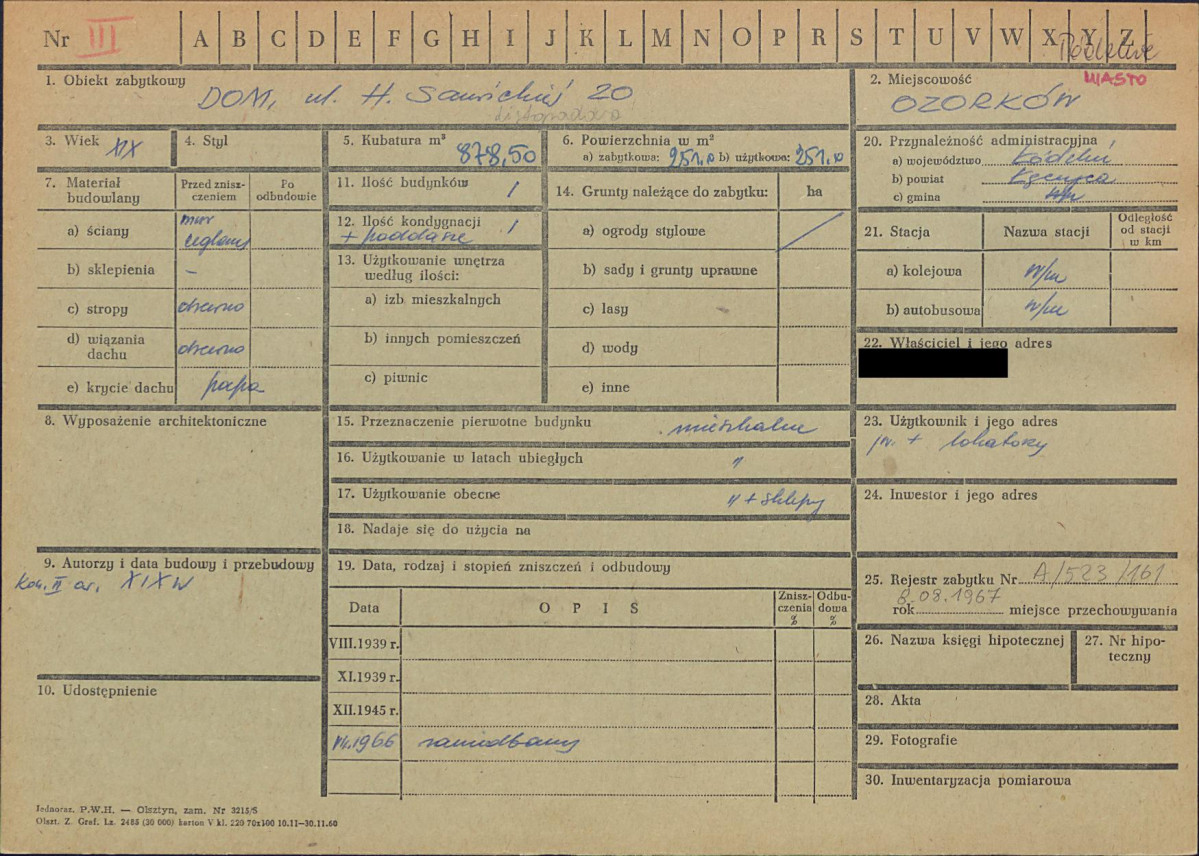 Nr III A B C D E F G H I J K L M N O P R S T U V W X Y Z
1. Obiekt zabytkowy
DOM, ul. H. Sawickiej 20
listopadowa
2. Miejscowość MIASTO
OZORKÓW
3. Wiek XIX
4. Styl
5. Kubatura m³
878,50
6. Powierzchnia w m²
a) zabytkowa: 251,0 b) użytkowa: 251,0
7. Materiał budowlany
Przed zniszczeniem
Po odbudowie
a) ściany mur ceglany
b) sklepienia –
c) stropy drewno
d) wiązania dachu drewno
e) krycie dachu papa
8. Wyposażenie architektoniczne
9. Autorzy i data budowy i przebudowy
Kon. II ćw. XIX w
10. Udostępnienie
11. Ilość budynków 1
12. Ilość kondygnacji 1
+ poddasze
13. Użytkowanie wnętrza według ilości:
a) izb mieszkalnych
b) innych pomieszczeń
c) piwnic
14. Grunty należące do zabytku: ha
a) ogrody stylowe
b) sady i grunty uprawne
c) lasy
d) wody
e) inne
15. Przeznaczenie pierwotne budynku mieszkalne
16. Użytkowanie w latach ubiegłych "
17. Użytkowanie obecne " + sklepy
18. Nadaje się do użycia na
19. Data, rodzaj i stopień zniszczeń i odbudowy
Data OPIS Zniszczenia % Odbudowa %
VIII.1939 r.
XI.1939 r.
XII.1945 r.
VII.1966 zaniedbany
20. Przynależność administracyjna
a) województwo Łódzkie
b) powiat Łęczyca
c) gmina
21. Stacja Nazwa stacji Odległość od stacji w km
a) kolejowa w/m
b) autobusowa w/m
22. Właściciel i jego adres
23. Użytkownik i jego adres
jw. + lokatorzy
24. Inwestor i jego adres
25. Rejestr zabytku Nr A/523/161
8.08.1967
rok miejsce przechowywania
26. Nazwa księgi hipotecznej
27. Nr hipoteczny
28. Akta
29. Fotografie
30. Inwentaryzacja pomiarowa
Jednoraz. P.W.H. — Olsztyn, zam. Nr 3215/S
Olszt. Z. Graf. Lz. 2485 (30 000) karton V kl. 220 70x100 10.11—30.11.60